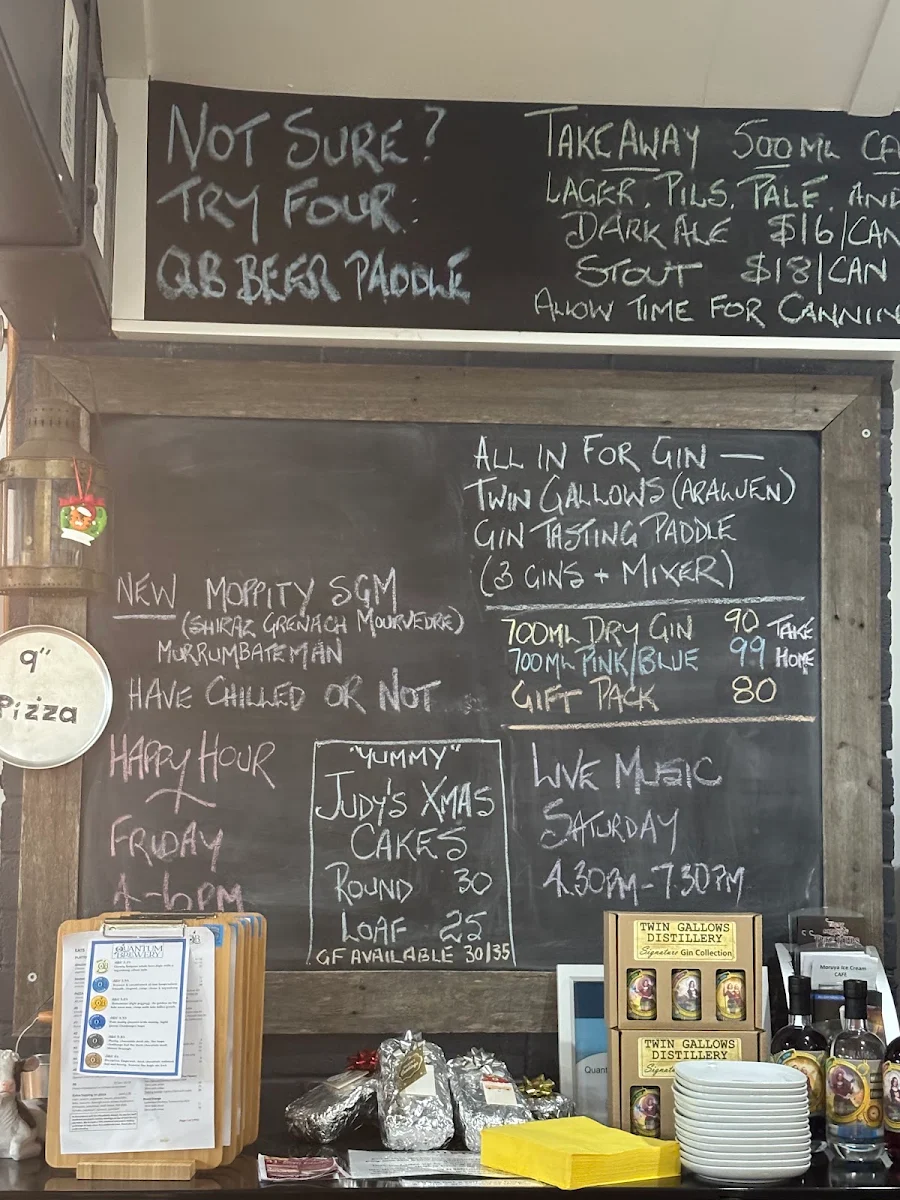 NOT SURE?
TRY FOUR:
QB BEER PADDLE
TAKEAWAY 500ML CA
LAGER, PILS, PALE, AND
DARK ALE $16/CAN
STOUT $18/CAN
ALLOW TIME FOR CANNIN
ALL IN FOR GIN —
TWIN GALLOWS (ARALUEN)
GIN TASTING PADDLE
(3 GINS + MIXER)
700ML DRY GIN 90 TAKE
700ML PINK/BLUE 99 HOME
GIFT PACK 80
NEW MOPPITY SGM
(SHIRAZ GRENACH MOURVEDRE)
MURRUMBATEMAN
HAVE CHILLED OR NOT
9"
Pizza
HAPPY HOUR
FRIDAY
4-6PM
"YUMMY"
JUDY'S XMAS
CAKES
ROUND 30
LOAF 25
GF AVAILABLE 30/35
LIVE MUSIC
SATURDAY
4.30PM-7.30PM
QUANTUM
BREWERY
TWIN GALLOWS
DISTILLERY
Signature Gin Collection
TWIN GALLOWS
DISTILLERY
Moruya Ice Cream
CAFE
Quant